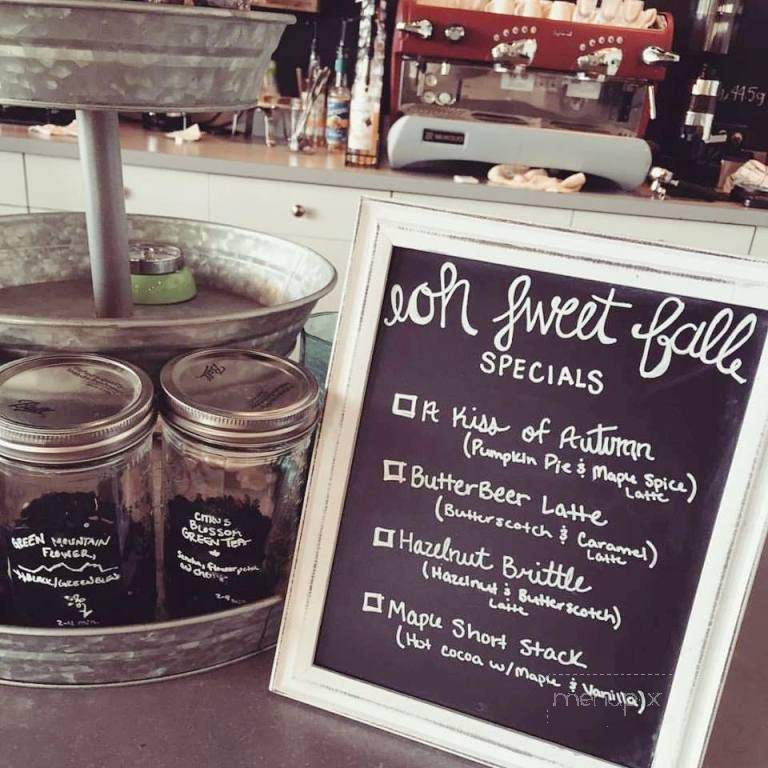 eoh sweet fall
SPECIALS
A Kiss of Autumn
(Pumpkin Pie & Maple Spice)
Latte
ButterBeer Latte
(Butterscotch & Caramel)
Latte
Hazelnut Brittle
(Hazelnut & Butterscotch)
Latte
Maple Short Stack
(Hot cocoa w/Maple & Vanilla)
GREEN MOUNTAIN
FLOWER,
BLACK/GREEN
CITRUS
BLOSSOM
GREEN TEA
Ball
445g
menupix